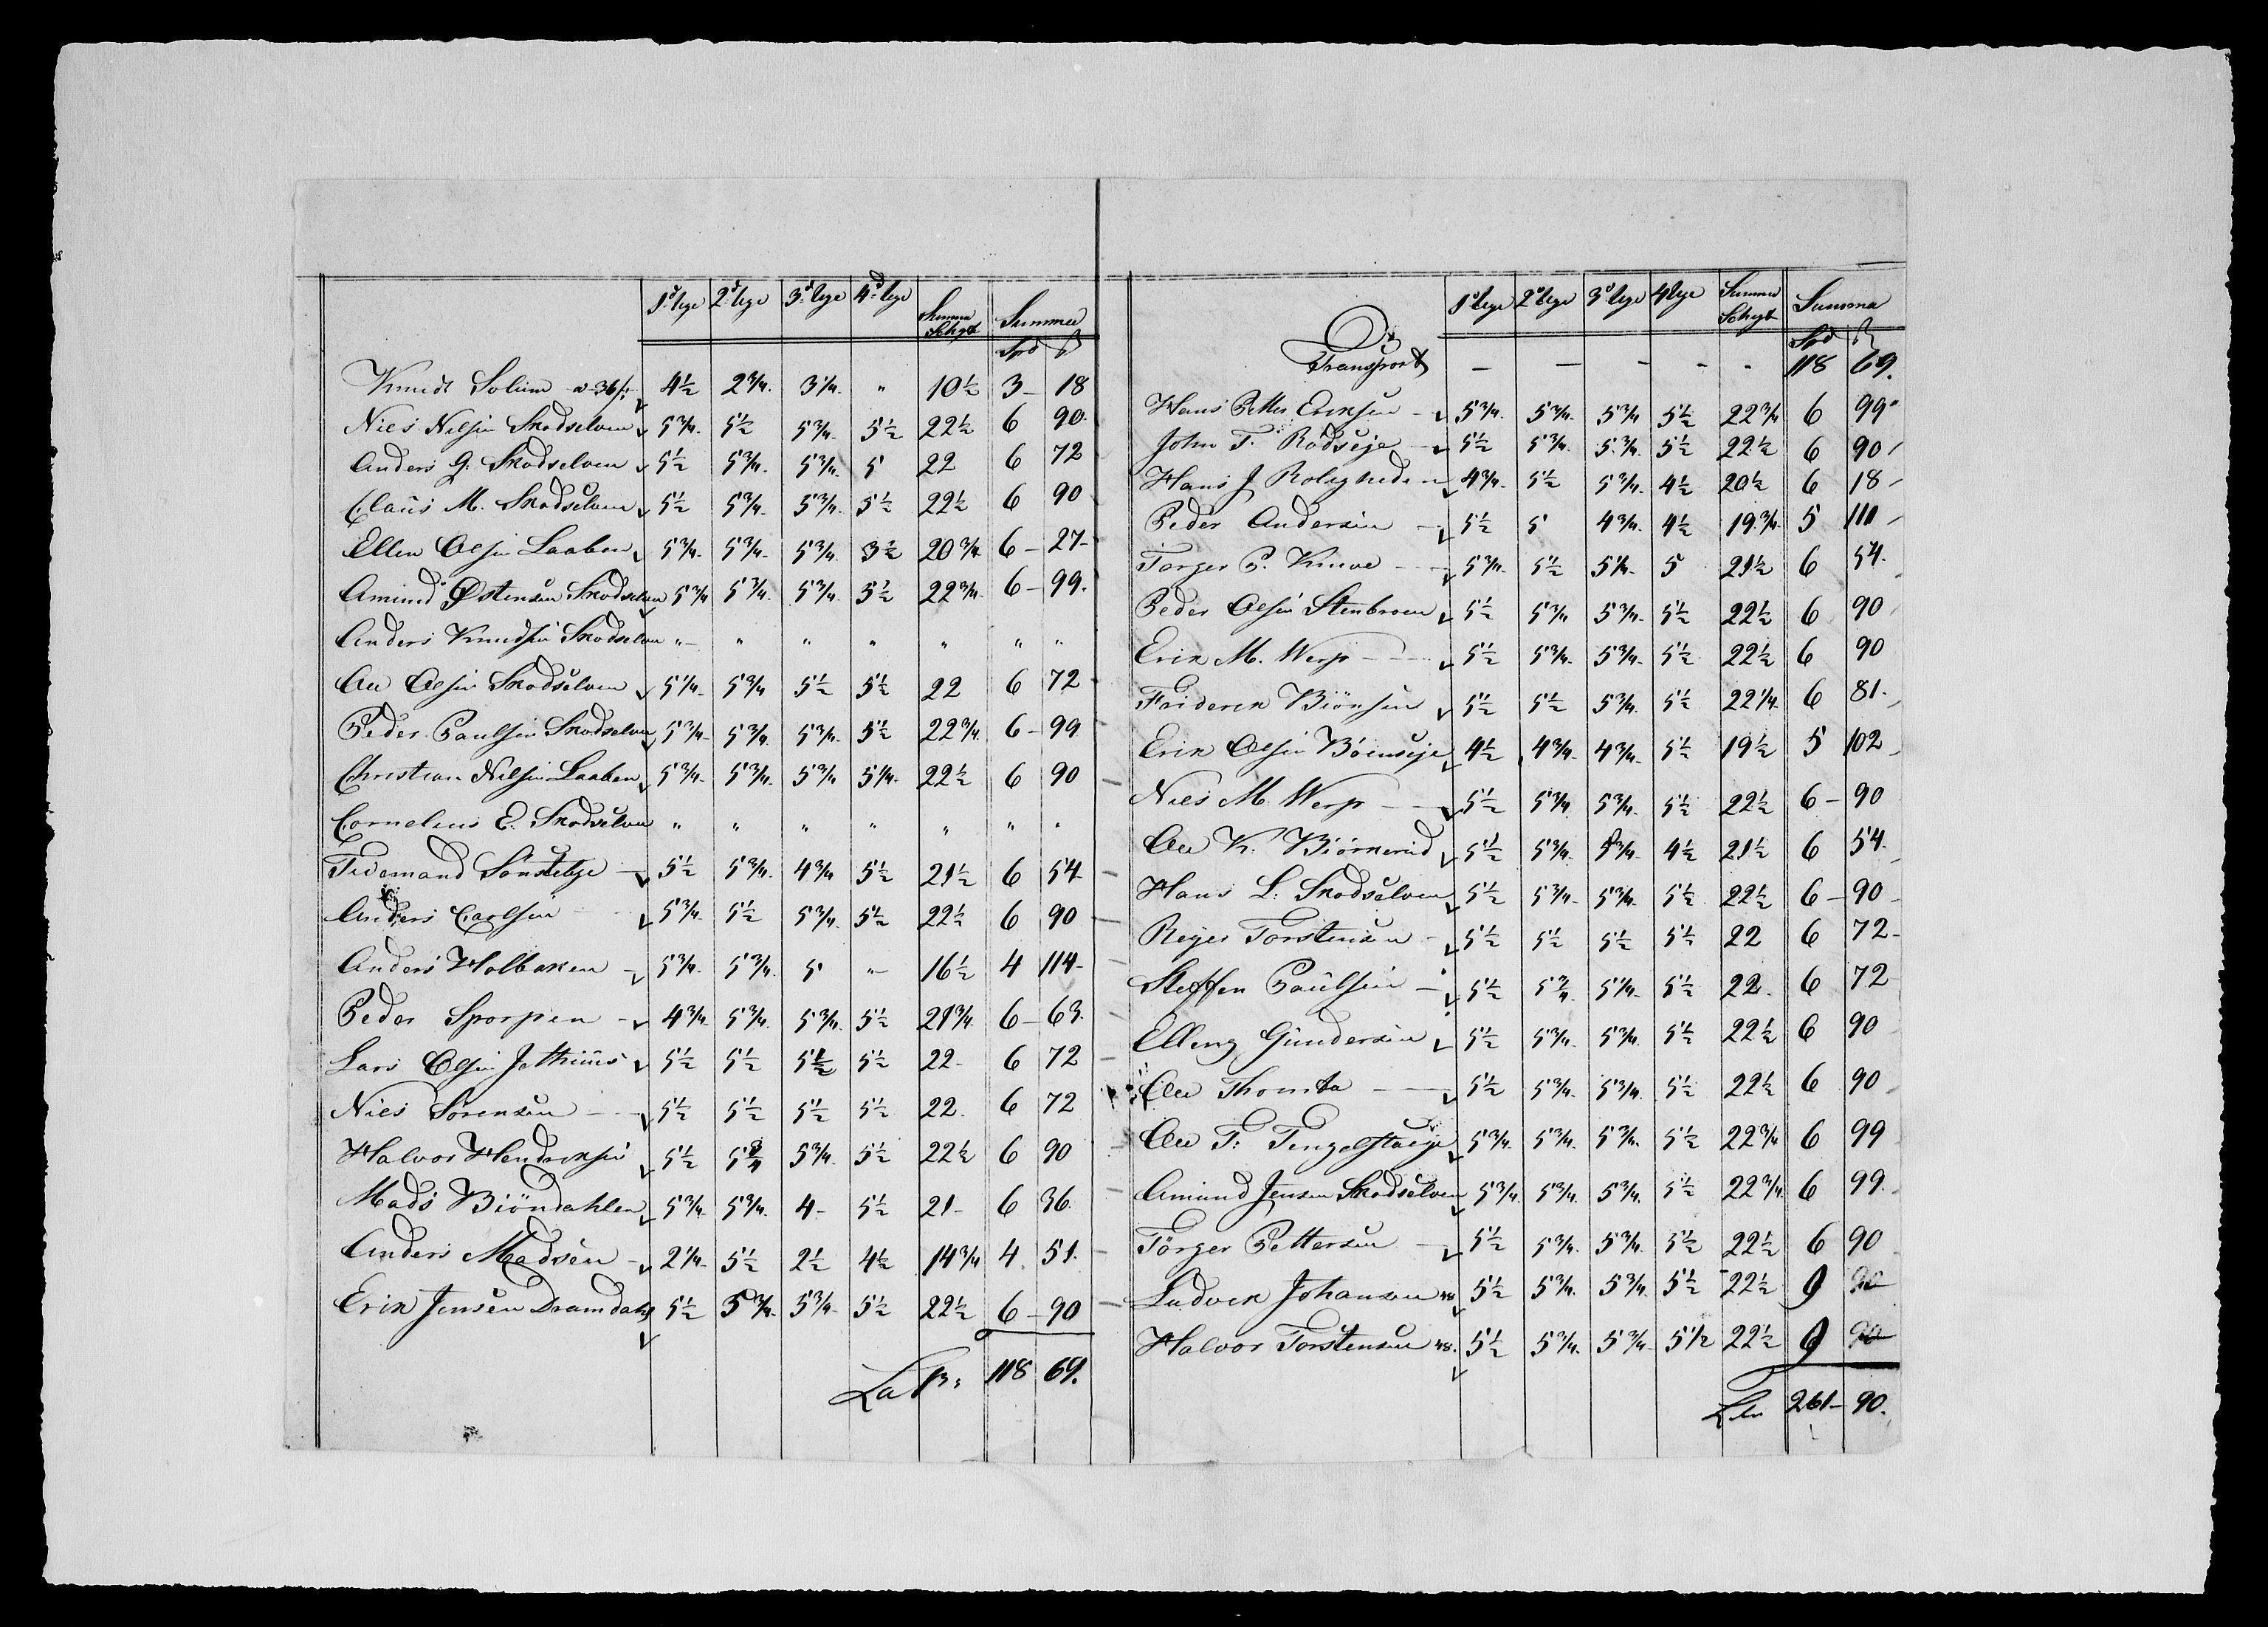 1ᵈ Uge 2ᵈ Uge 3ᵈ Uge 4ᵈ Uge Summa Schyt Summa
Spd ß
Knudt Solum a 36 ß 4½ 2¾ 3¼ " 10½ 3 – 18
Niels Nilsen Skodselven 5¾ 5½ 5¾ 5½ 22½ 6 90
Anders G. Skodselven 5½ 5¾ 5¾ 5 22 6 72
Claus M. Skodselven 5½ 5¾ 5¾ 5½ 22½ 6 90
Ellen Olsen Laaben 5¾ 5¾ 5¾ 3½ 20¾ 6 – 27
Amund Østensen Skodselven 5¾ 5¾ 5¾ 5½ 22¾ 6 – 99.
Anders Knudsen Skodselven " " " " " " "
Ole Olsen Skodselven 5¼ 5¾ 5½ 5½ 22 6 72
Peder Paulsen Skodselven 5¾ 5¾ 5¾ 5½ 22¾ 6 – 99
Christian Nilsen Laaben 5¾ 5¾ 5¾ 5¼ 22½ 6 90
Cornelius E. Skodselven " " " " " " "
Tidemand Sönsteby 5½ 5¾ 4¾ 5½ 21½ 6 54
Anders Carlsen 5¾ 5½ 5¾ 5½ 22½ 6 90
Anders Holbaken 5¾ 5¾ 5 " 16½ 4 114
Peder Sporpen 4¾ 5¾ 5¾ 5½ 21¾ 6 – 63.
Lars Olsen 5½ 5½ 5½ 5½ 22 6 72
Niels Sörensen 5½ 5½ 5½ 5½ 22 6 72
Halvor Hendriksen 5½ 5¾ 5¾ 5½ 22½ 6 90
Mads Biöndahlen 5¾ 5¾ 4 – 5½ 21 – 6 36
Anders Madsen 2¼ 5½ 2½ 4½ 14¾ 4 51.
Erik Jensen Dramdahl 5½ 5¾ 5¾ 5½ 22½ 6 – 90
Latr: 118 69.
1ᵈ Uge 2ᵈ Uge 3ᵈ Uge 4 Uge Summa Schyt Summa
Spd ß
Transport – – – – – 118 69.
Hans Petter Eriksen 5¾ 5¾ 5¾ 5½ 22¾ 6 99
John T. Rödseje 5½ 5¾ 5¾ 5½ 22½ 6 90
Hans J Rolighede 4¾ 5½ 5¾ 4½ 20½ 6 18
Peder Andersen 5½ 5 4¾ 4½ 19¾ 5 111
Torger P. Kruve 5¾ 5½ 5¼ 5 21½ 6 54.
Peder Olsen Stenbroen 5½ 5¾ 5¾ 5½ 22½ 6 90
Erik M. Werp 5½ 5¾ 5¾ 5½ 22½ 6 90
Friderik Biönsen 5½ 5½ 5¾ 5½ 22¼ 6 81.
Erik Olsen Böenseje 4½ 4¾ 4¾ 5½ 19½ 5 102
Niels M. Werp 5½ 5¾ 5¾ 5½ 22½ 6 – 90
Ole K. Biörnerud 5½ 5¾ 5¾ 4½ 21½ 6 54.
Hans L. Skodselven 5½ 5¾ 5¾ 5½ 22½ 6 – 90
Reyer Torstensen 5½ 5½ 5½ 5½ 22 6 72
Steffen Paulsen 5½ 5¾ 5¼ 5½ 22 6 72
Elling Gundersen 5½ 5¾ 5¾ 5½ 22½ 6 90
Ole Thomta 5½ 5¾ 5¾ 5½ 22½ 6 90
Ole T: 5¾ 5¾ 5¾ 5½ 22¾ 6 99
Amund Jensen Skodselven 5¾ 5¾ 5¾ 5½ 22¾ 6 99.
Törger Pettersen 5½ 5¾ 5¾ 5½ 22½ 6 90
Ludvik Johansen 48 5½ 5¾ 5¾ 5½ 22½ 9 90
Halvor Torstensen 48. 5½ 5¾ 5¾ 5½ 22½ 9 90
261 – 90.